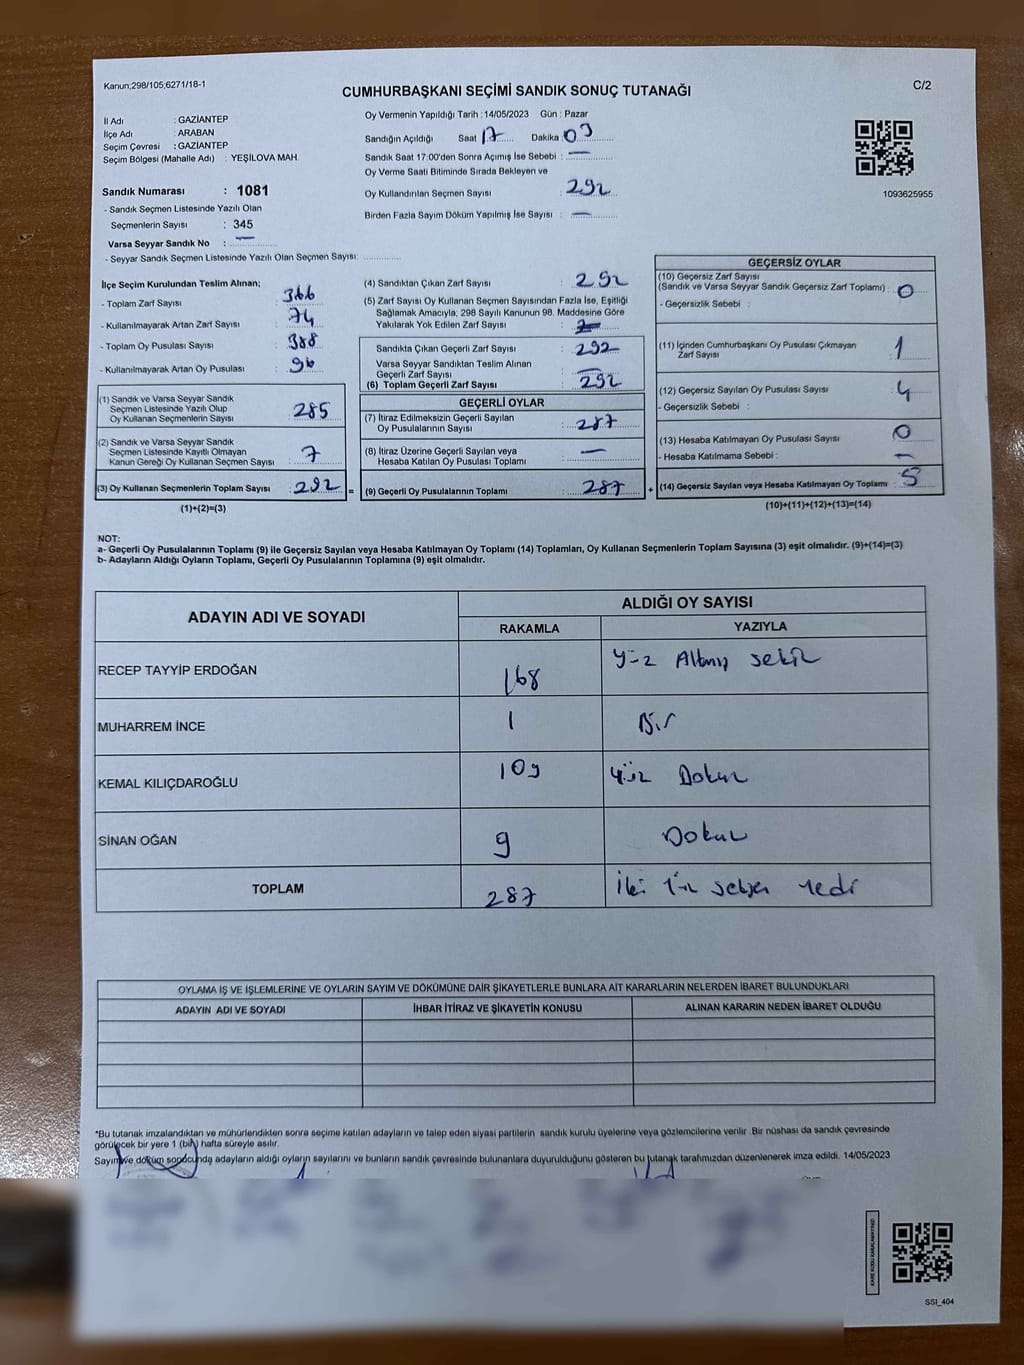 Kanun;298/105;6271/18-1
CUMHURBAŞKANI SEÇİMİ SANDIK SONUÇ TUTANAĞI
C/2
İl Adı : GAZİANTEP
İlçe Adı : ARABAN
Seçim Çevresi : GAZİANTEP
Seçim Bölgesi (Mahalle Adı) : YEŞİLOVA MAH.
Sandık Numarası : 1081
- Sandık Seçmen Listesinde Yazılı Olan
Seçmenlerin Sayısı : 345
Varsa Seyyar Sandık No : —
- Seyyar Sandık Seçmen Listesinde Yazılı Olan Seçmen Sayısı:
Oy Vermenin Yapıldığı Tarih : 14/05/2023 Gün : Pazar
Sandığın Açıldığı Saat 17 Dakika 03
Sandık Saat 17:00'den Sonra Açımış İse Sebebi : —
Oy Verme Saati Bitiminde Sırada Bekleyen ve
Oy Kullandırılan Seçmen Sayısı : 292
Birden Fazla Sayım Döküm Yapılmış İse Sayısı : —
1093625955
İlçe Seçim Kurulundan Teslim Alınan;
- Toplam Zarf Sayısı : 366
- Kullanılmayarak Artan Zarf Sayısı : 74
- Toplam Oy Pusulası Sayısı : 388
- Kullanılmayarak Artan Oy Pusulası : 96
(1) Sandık ve Varsa Seyyar Sandık
Seçmen Listesinde Yazılı Olup
Oy Kullanan Seçmenlerin Sayısı : 285
(2) Sandık ve Varsa Seyyar Sandık
Seçmen Listesinde Kayıtlı Olmayan
Kanun Gereği Oy Kullanan Seçmen Sayısı : 7
(3) Oy Kullanan Seçmenlerin Toplam Sayısı : 292 =
(1)+(2)=(3)
(4) Sandıktan Çıkan Zarf Sayısı : 292
(5) Zarf Sayısı Oy Kullanan Seçmen Sayısından Fazla İse, Eşitliği
Sağlamak Amacıyla; 298 Sayılı Kanunun 98. Maddesine Göre
Yakılarak Yok Edilen Zarf Sayısı :
Sandıkta Çıkan Geçerli Zarf Sayısı : 292
Varsa Seyyar Sandıktan Teslim Alınan
Geçerli Zarf Sayısı : —
(6) Toplam Geçerli Zarf Sayısı : 292
GEÇERLİ OYLAR
(7) İtiraz Edilmeksizin Geçerli Sayılan
Oy Pusulalarının Sayısı : 287
(8) İtiraz Üzerine Geçerli Sayılan veya
Hesaba Katılan Oy Pusulası Toplamı : —
(9) Geçerli Oy Pusulalarının Toplamı : 287 +
GEÇERSİZ OYLAR
(10) Geçersiz Zarf Sayısı
(Sandık ve Varsa Seyyar Sandık Geçersiz Zarf Toplamı) : 0
- Geçersizlik Sebebi :
(11) İçinden Cumhurbaşkanı Oy Pusulası Çıkmayan
Zarf Sayısı : 1
(12) Geçersiz Sayılan Oy Pusulası Sayısı : 4
- Geçersizlik Sebebi :
(13) Hesaba Katılmayan Oy Pusulası Sayısı : 0
- Hesaba Katılmama Sebebi : —
(14) Geçersiz Sayılan veya Hesaba Katılmayan Oy Toplamı : 5
(10)+(11)+(12)+(13)=(14)
NOT:
a- Geçerli Oy Pusulalarının Toplamı (9) ile Geçersiz Sayılan veya Hesaba Katılmayan Oy Toplamı (14) Toplamları, Oy Kullanan Seçmenlerin Toplam Sayısına (3) eşit olmalıdır. (9)+(14)=(3)
b- Adayların Aldığı Oyların Toplamı, Geçerli Oy Pusulalarının Toplamına (9) eşit olmalıdır.
ADAYIN ADI VE SOYADI
ALDIĞI OY SAYISI
RAKAMLA YAZIYLA
RECEP TAYYİP ERDOĞAN 168 Yüz Altmış sekiz
MUHARREM İNCE 1 Bir
KEMAL KILIÇDAROĞLU 109 Yüz Dokuz
SİNAN OĞAN 9 Dokuz
TOPLAM 287 İki Yüz seksen Yedi
OYLAMA İŞ VE İŞLEMLERİNE VE OYLARIN SAYIM VE DÖKÜMÜNE DAİR ŞİKAYETLERLE BUNLARA AİT KARARLARIN NELERDEN İBARET BULUNDUKLARI
ADAYIN ADI VE SOYADI İHBAR İTİRAZ VE ŞİKAYETİN KONUSU ALINAN KARARIN NEDEN İBARET OLDUĞU
*Bu tutanak imzalandıktan ve mühürlendikten sonra seçime katılan adayların ve talep eden siyasi partilerin sandık kurulu üyelerine veya gözlemcilerine verilir. Bir nüshası da sandık çevresinde
görülecek bir yere 1 (bir) hafta süreyle asılır.
Sayım ve döküm sonucunda adayların aldığı oyların sayılarını ve bunların sandık çevresinde bulunanlara duyurulduğunu gösteren bu tutanak tarafımızdan düzenlenerek imza edildi. 14/05/2023
SSI_404